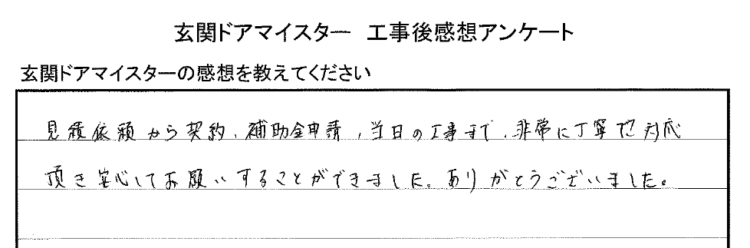 玄関ドアマイスター 工事後感想アンケート
玄関ドアマイスターの感想を教えてください
見積依頼から契約、補助金申請、当日の工事まで、非常に丁寧に対応
頂き安心してお願いすることができました。ありがとうございました。